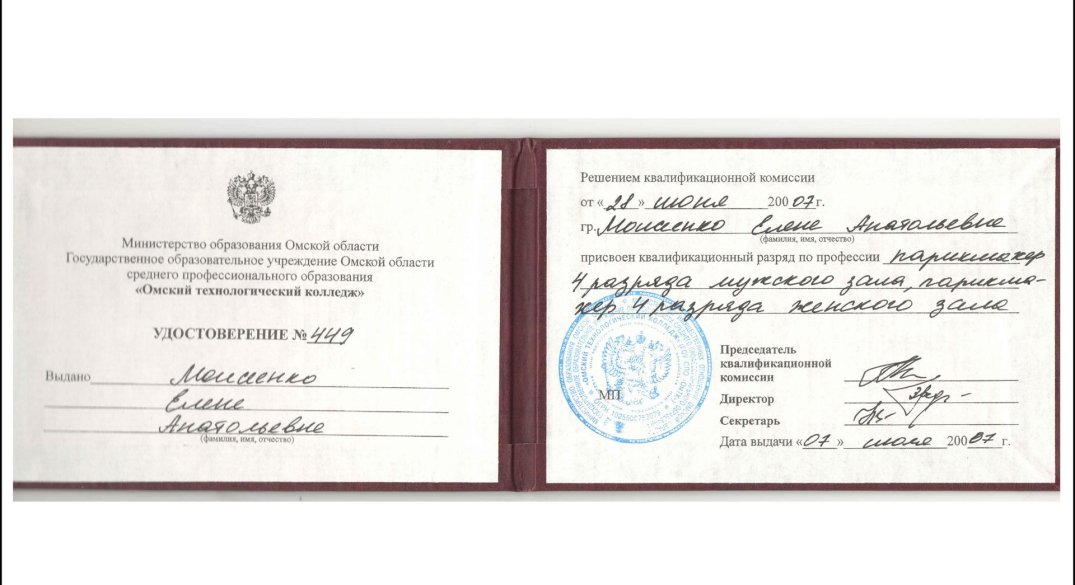 Министерство образования Омской области
Государственное образовательное учреждение Омской области
среднего профессионального образования
«Омский технологический колледж»
УДОСТОВЕРЕНИЕ № 449
Выдано Моисеенко
Елене
Анатольевне
(фамилия, имя, отчество)
Решением квалификационной комиссии
от « 28 » июня 2007 г.
гр. Моисеенко Елене Анатольевне
(фамилия, имя, отчество)
присвоен квалификационный разряд по профессии парикмахер
4 разряда мужского зала, парикма-
хер 4 разряда женского зала
ОМСКИЙ ТЕХНОЛОГИЧЕСКИЙ КОЛЛЕДЖ
МП
Председатель
квалификационной
комиссии
Директор
Секретарь
Дата выдачи « 07 » июля 2007 г.